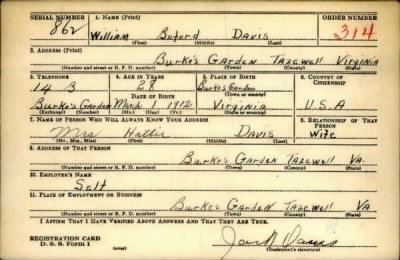 SERIAL NUMBER 1. NAME (Print) ORDER NUMBER
862 William Buford Davis 314
(First) (Middle) (Last)
2. ADDRESS (Print)
Burke's Garden Tazewell Virginia
(Number and street or R. F. D. number) (Town) (County) (State)
3. TELEPHONE 4. AGE IN YEARS 5. PLACE OF BIRTH 6. COUNTRY OF CITIZENSHIP
14 B 28 Burke's Garden
DATE OF BIRTH (Town or county)
Burke's Garden March 1 1912 Virginia U.S.A
(Exchange) (Number) (Mo.) (Day) (Yr.) (State or country)
7. NAME OF PERSON WHO WILL ALWAYS KNOW YOUR ADDRESS 8. RELATIONSHIP OF THAT PERSON
Mrs Hattie Davis Wife
(Mr., Mrs., Miss) (First) (Middle) (Last)
9. ADDRESS OF THAT PERSON
Burke's Garden Tazewell Va.
(Number and street or R. F. D. number) (Town) (County) (State)
10. EMPLOYER'S NAME
Self
11. PLACE OF EMPLOYMENT OR BUSINESS
Burke's Garden Tazewell Va
(Number and street or R. F. D. number) (Town) (County) (State)
I AFFIRM THAT I HAVE VERIFIED ABOVE ANSWERS AND THAT THEY ARE TRUE.
REGISTRATION CARD
D. S. S. Form 1 (Registrant's signature)